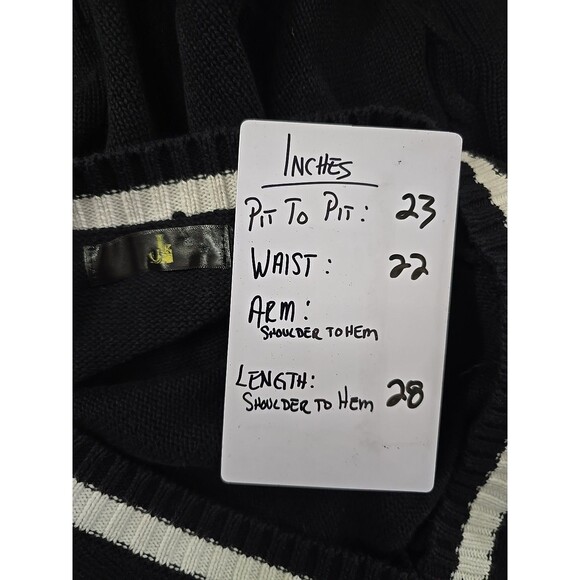 INCHES
PIT TO PIT: 23
WAIST: 22
ARM:
SHOULDER TO HEM
LENGTH:
SHOULDER TO HEM 28